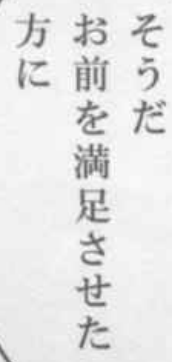 そうだ
お前を満足させた
方に